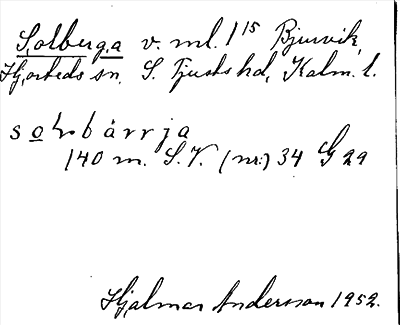 Solberga v. ml. 1 15 Bjursvik,
Hjorteds sn. S. Tjusts hd, Kalm. l.
solbärrja
140 m. S.V. (nr:) 34 G 2a
Hjalmar Andersson 1952.